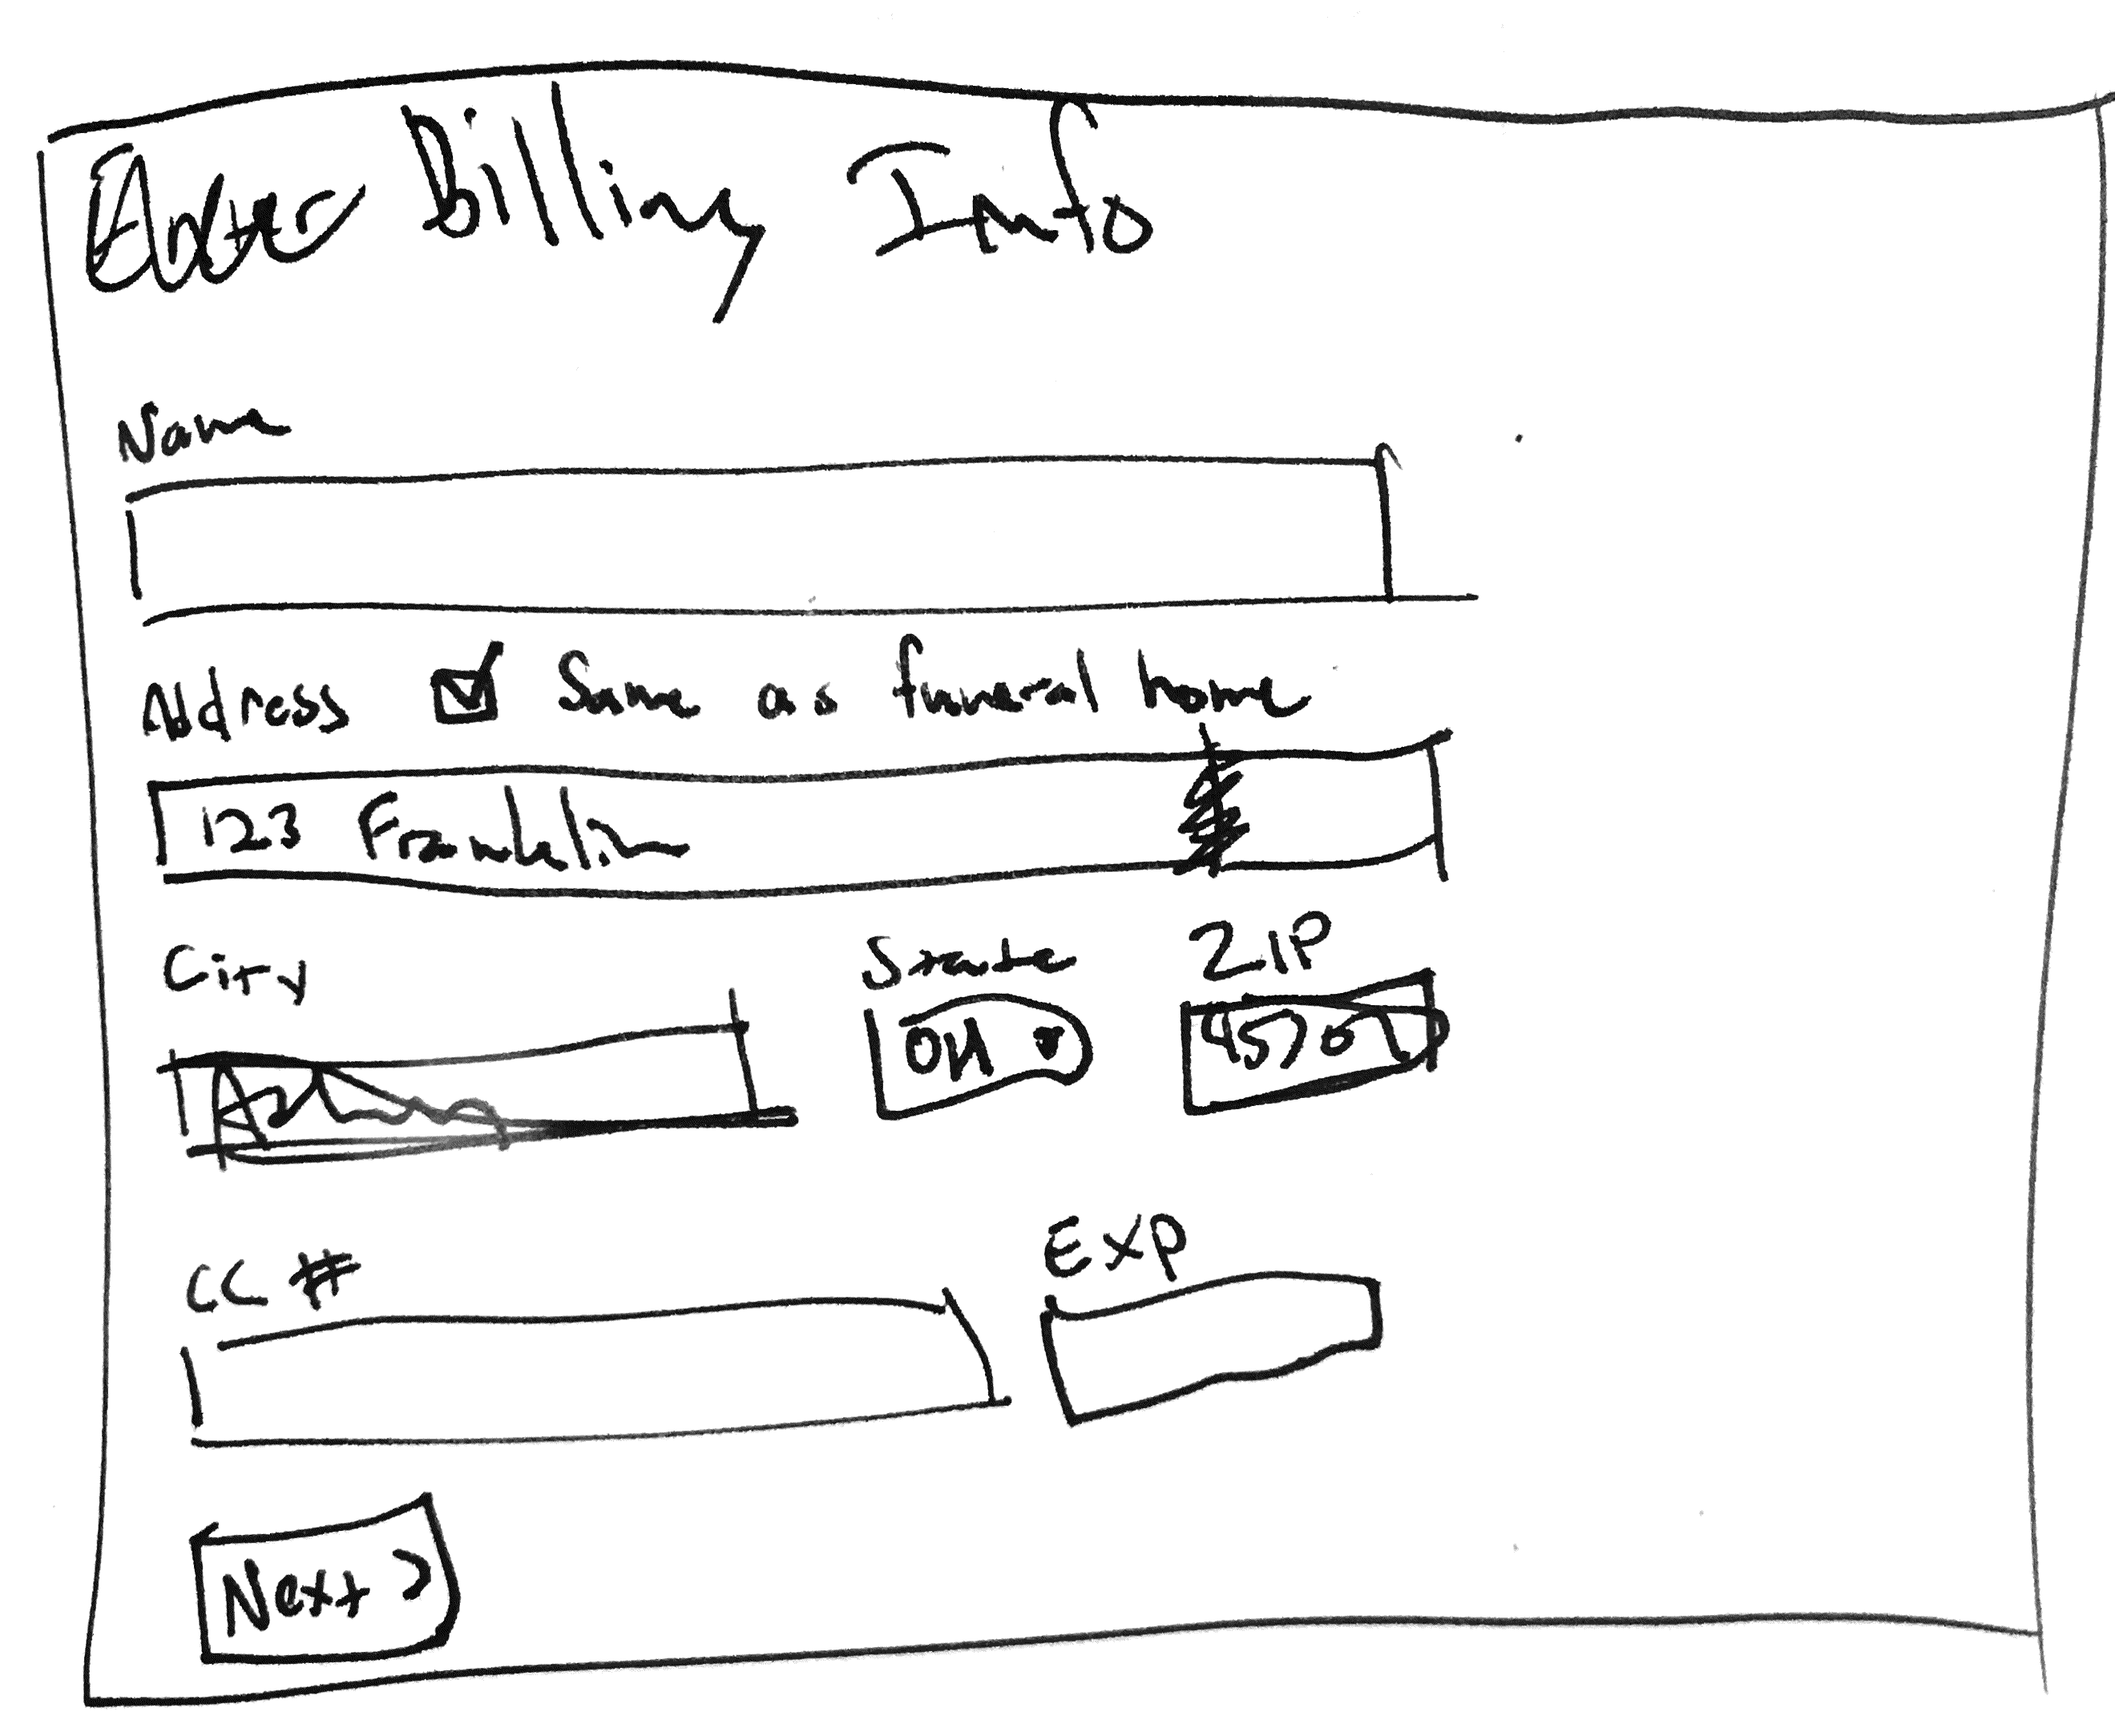 Enter Billing Info
Name
Address Same as funeral home
123 Franklin
City State ZIP
OH 45701
CC # Exp
Next >